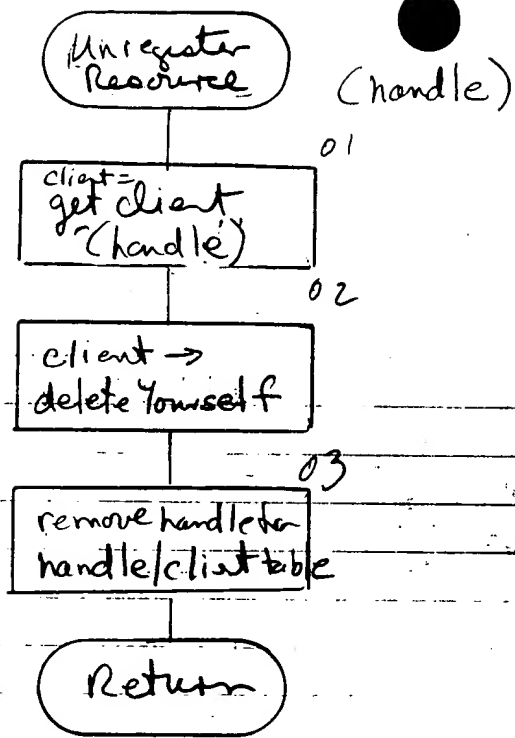 Unregister
Resource
(handle)
01
client =
get client
(handle)
02
client →
delete Yourself
03
remove handle
handle/client table
Return